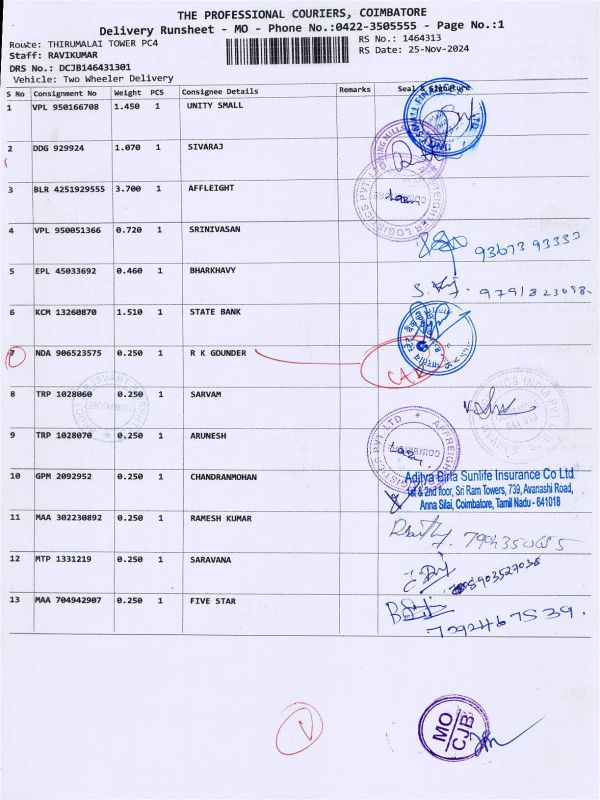 THE PROFESSIONAL COURIERS, COIMBATORE
Delivery Runsheet - MO - Phone No.:0422-3505555 - Page No.:1
Route: THIRUMALAI TOWER PC4
RS No.: 1464313
Staff: RAVIKUMAR
RS Date: 25-Nov-2024
DRS No.: DCJB146431301
Vehicle: Two Wheeler Delivery
S No Consignment No Weight PCS Consignee Details Remarks Seal & Signature
1 VPL 950166708 1.450 1 UNITY SMALL
2 DDG 929924 1.070 1 SIVARAJ
3 BLR 4251929555 3.700 1 AFFLEIGHT
4 VPL 950051366 0.720 1 SRINIVASAN
93673 93333
5 EPL 45033692 0.460 1 BHARKHAVY
6 KCM 13260870 1.510 1 STATE BANK
7 NDA 906523575 0.250 1 R K GOUNDER
8 TRP 1028060 0.250 1 SARVAM
9 TRP 1028070 0.250 1 ARUNESH
10 GPM 2092952 0.250 1 CHANDRANMOHAN
Aditya Birla Sunlife Insurance Co Ltd
1st & 2nd floor, Sri Ram Towers, 739, Avanashi Road,
Anna Silai, Coimbatore, Tamil Nadu - 641018
11 MAA 302230892 0.250 1 RAMESH KUMAR
12 MTP 1331219 0.250 1 SARAVANA
8903527038
13 MAA 704942907 0.250 1 FIVE STAR
MO
CJB